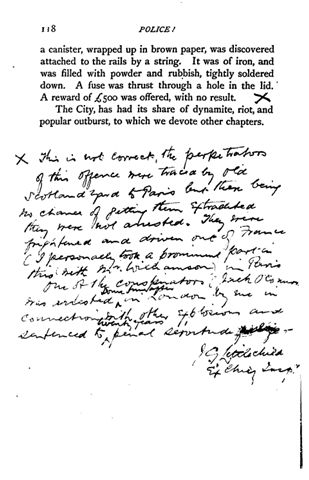 118 POLICE!
a canister, wrapped up in brown paper, was discovered
attached to the rails by a string. It was of iron, and
was filled with powder and rubbish, tightly soldered
down. A fuse was thrust through a hole in the lid.
A reward of £500 was offered, with no result. X
The City, has had its share of dynamite, riot, and
popular outburst, to which we devote other chapters.
X This is not correct, the perpetrators
of this offence were traced by old
Scotland Yard to Paris but there being
no chance of getting them extradited
they were not arrested. They were
frightened and driven out of France
(I personally took a prominent part in
this with Mr. Williamson) in Paris
One of the conspirators
some time after
was arrested in London by me in
connection with other explosion and
sentenced to twenty years penal servitude
J G Littlechild
Ex Chief Insp.